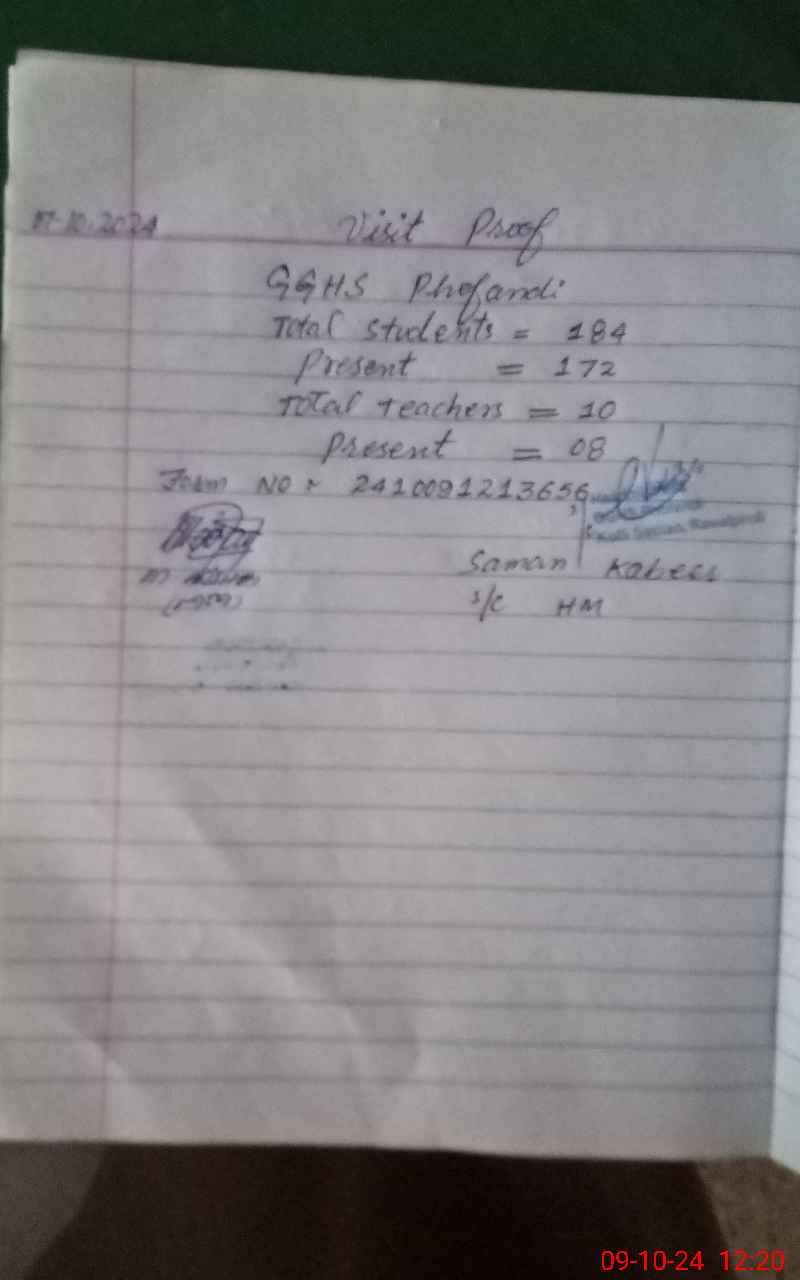 Visit Proof
GGHS Phofandi
Total students = 184
Present = 172
Total teachers = 10
Present = 08
Form NO : 2410091213656
Saman Kabeer
S/C HM
09-10-24 12:20